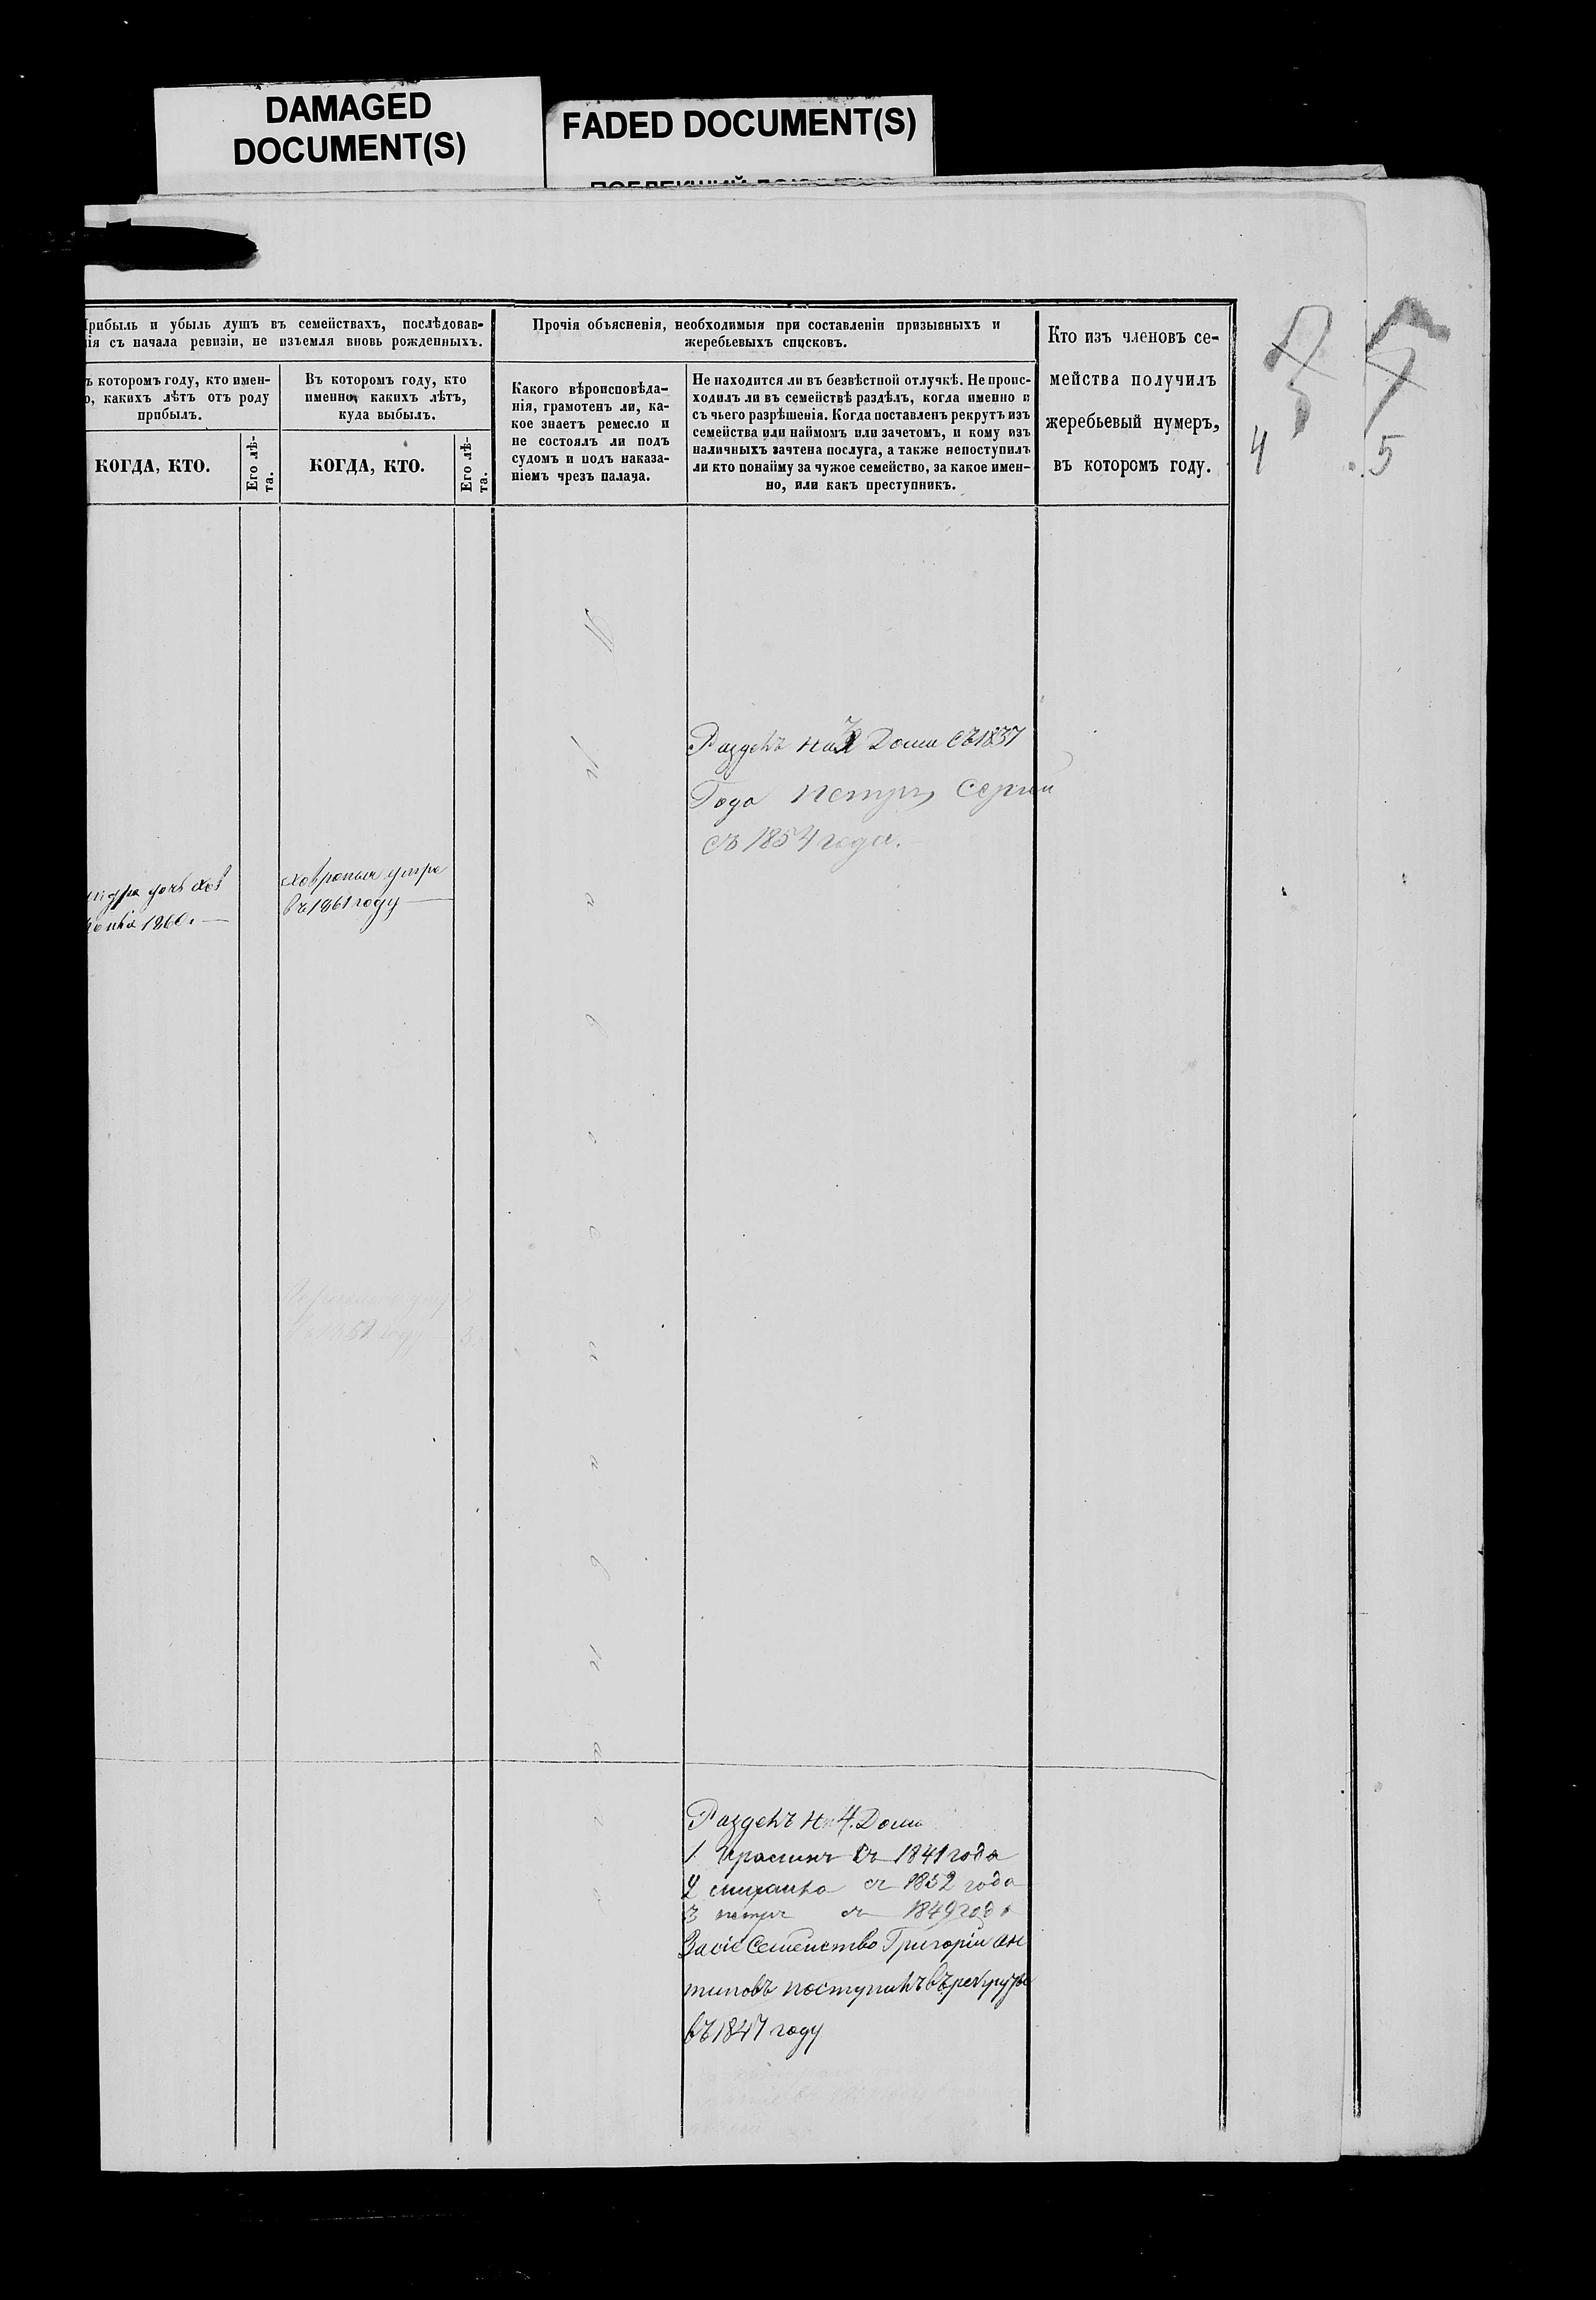 DAMAGED
DOCUMENT(S)
FADED DOCUMENT(S)
Прибыль и убыль душъ въ семействахъ, послѣдовав-
нія съ начала ревизіи, не изъемля вновь рожденныхъ.
ъ которомъ году, кто имен-
о, какихъ лѣтъ отъ роду
прибылъ.
КОГДА, КТО.
Его лѣ-
та.
Въ которомъ году, кто
именно, какихъ лѣтъ,
куда выбылъ.
КОГДА, КТО.
Его лѣ-
та.
Прочія объясненія, необходимыя при составленіи призывныхъ и
жеребьевыхъ списковъ.
Какого вѣроисповѣда-
нія, грамотенъ ли, ка-
кое знаетъ ремесло и
не состоялъ ли подъ
судомъ и подъ наказа-
ніемъ чрезъ палача.
Не находится ли въ безвѣстной отлучкѣ. Не проис-
ходилъ ли въ семействѣ раздѣлъ, когда именно и
съ чьего разрѣшенія. Когда поставленъ рекрутъ изъ
семейства или наймомъ или зачетомъ, и кому изъ
наличныхъ зачтена послуга, а также непоступилъ
ли кто понайму за чужое семейство, за какое имен-
но, или какъ преступникъ.
Кто изъ членовъ се-
мейства получилъ
жеребьевый нумеръ,
въ которомъ году.
4
5
Раздѣлъ на Дома съ 1837
Года Петръ, Сергѣй
съ 1854 года.
дочь Хов
1860.
Ховронья умре
въ 1861 году
Раздѣлъ на 4. Дома
1 съ 1841 года
2 Михаила съ 1852 года
3 Петръ съ 1849 года
За сіе Семейство Григорій Ан
типовъ поступилъ въ рекруты
въ 1847 году